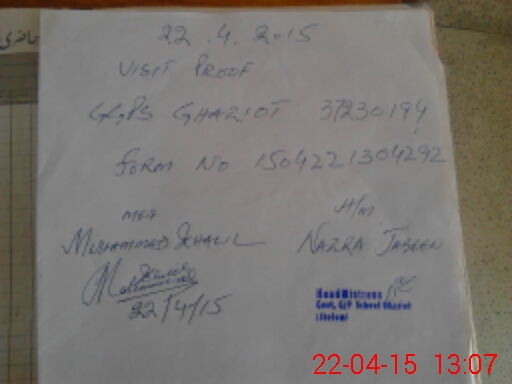 حاضری
22.4.2015
VISIT PROOF
GGPS GHAZIOT 37230194
FORM NO 1504221304292
MEA H/M
MUHAMMAD KHALIL NAZRA JABEEN
22/4/15
HeadMistress
Govt. G/P School Ghaziot
(Jhelum)
22-04-15 13:07